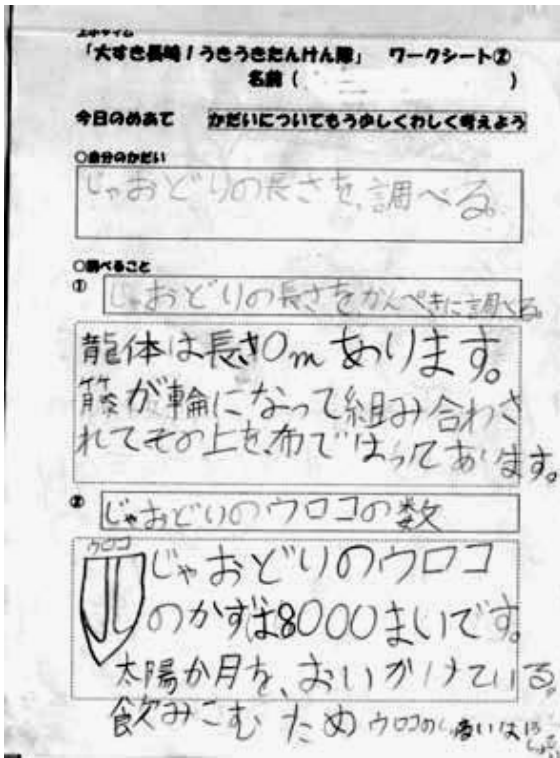 上小タイム
「大すき長崎！うきうきたんけん隊」 ワークシート②
名前（ ）
今日のめあて かだいについてもう少しくわしく考えよう
○自分のかだい
じゃおどりの長さを、調べる。
○調べること
① じゃおどりの長さをかんぺきに調べる。
龍体は長さ0mあります。
籐が輪になって組み合わさ
れてその上を、布ではってあります。
② じゃおどりのウロコの数
ウロコ
じゃおどりのウロコ
のかずは8000まいです。
太陽か月を、おいかけている
飲みこむ ため ウロコのしゅるいは